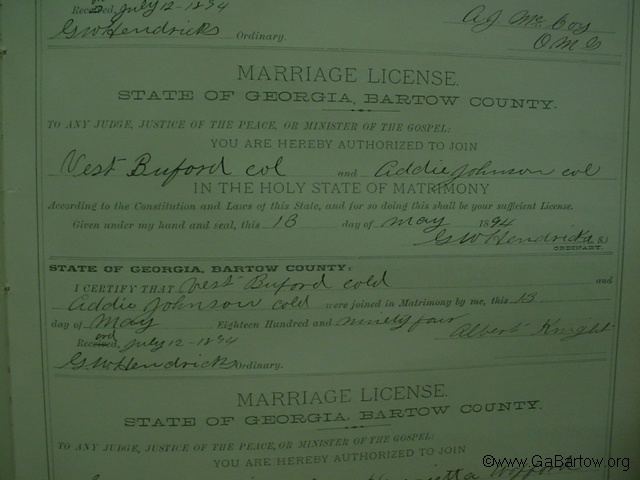 Received, July 12-1894
A J McCoy
G W Hendricks Ordinary.
O. M. G
MARRIAGE LICENSE.
STATE OF GEORGIA, BARTOW COUNTY.
TO ANY JUDGE, JUSTICE OF THE PEACE, OR MINISTER OF THE GOSPEL:
YOU ARE HEREBY AUTHORIZED TO JOIN
Vest Buford col and Addie Johnson col
IN THE HOLY STATE OF MATRIMONY
According to the Constitution and Laws of this State, and for so doing this shall be your sufficient License.
Given under my hand and seal, this 13 day of May 1894
G W Hendricks
ORDINARY.
STATE OF GEORGIA, BARTOW COUNTY:
I CERTIFY THAT Vest Buford cold and
Addie Johnson cold were joined in Matrimony by me, this 13
day of May Eighteen Hundred and ninety four
Albert Knight
Received, July 12-1894
G W Hendricks Ordinary.
MARRIAGE LICENSE.
STATE OF GEORGIA, BARTOW COUNTY.
TO ANY JUDGE, JUSTICE OF THE PEACE, OR MINISTER OF THE GOSPEL:
YOU ARE HEREBY AUTHORIZED TO JOIN
©www.GaBartow.org